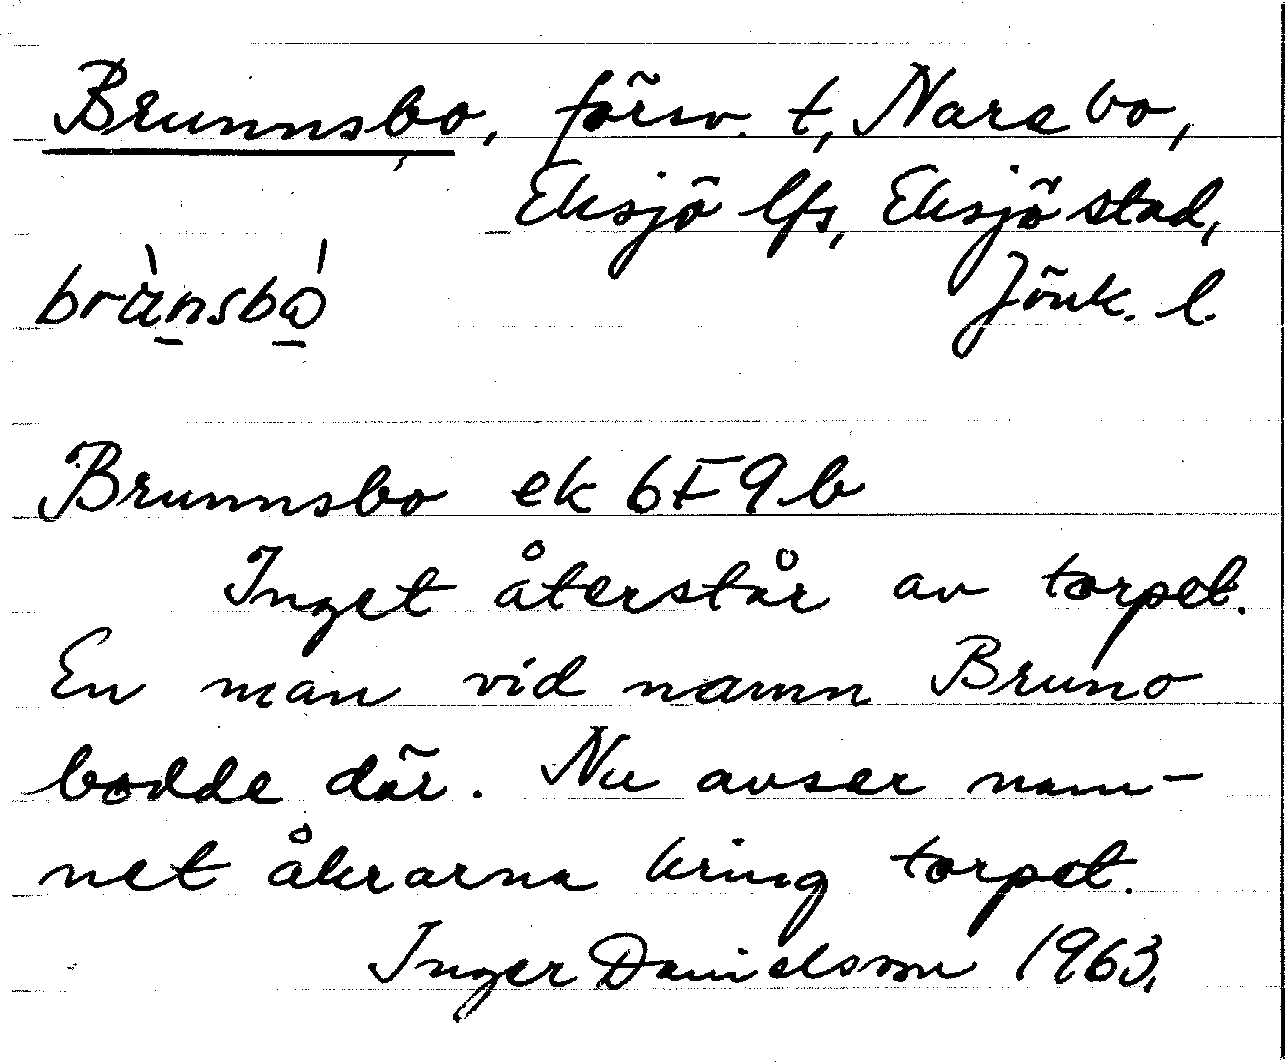 Brunnsbo, försv. t, Narebo,
Eksjö lfs, Eksjö stad,
Jönk. l.
Brunnsbo ek 6F9b
Inget återstår av torpet.
En man vid namn Bruno
bodde där. Nu avser nam-
net åkrarna kring torpet.
Inger Danielsson 1963.